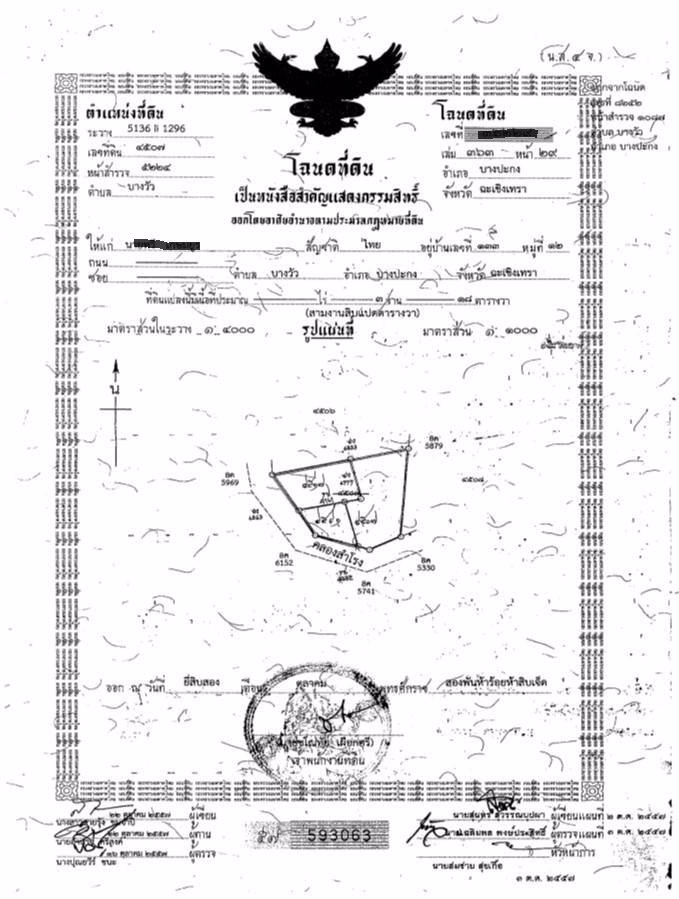 (น.ส.๔ จ.)
ตำแหน่งที่ดิน
ระวาง 5136 II 1296
เลขที่ดิน ๔๕๐๗
หน้าสำรวจ ๕๒๒๔
ตำบล บางวัว
โฉนดที่ดิน
เลขที่
เล่ม ๓๖๓ หน้า ๒๙
อำเภอ บางปะกง
จังหวัด ฉะเชิงเทรา
ออกจากโฉนด
เลขที่ ๘๒๕๒
หน้าสำรวจ ๑๐๘๗
ตำบล บางวัว
อำเภอ บางปะกง
โฉนดที่ดิน
เป็นหนังสือสำคัญแสดงกรรมสิทธิ์
ออกโดยอาศัยอำนาจตามประมวลกฎหมายที่ดิน
ให้แก่ สัญชาติ ไทย อยู่บ้านเลขที่ ๑๓๓ หมู่ที่ ๑๒
ถนน
ซอย ตำบล บางวัว อำเภอ บางปะกง จังหวัด ฉะเชิงเทรา
ที่ดินแปลงนี้มีเนื้อที่ประมาณ ไร่ ๓ งาน ๑๘ ตารางวา
(สามงานสิบแปดตารางวา)
มาตราส่วนในระวาง ๑:๔๐๐๐ รูปแผนที่ มาตราส่วน ๑:๑๐๐๐
น
๔๕๐๖
5879
5969
๔๕๐๘
คลองสำโรง
6152
5330
5741
ออก ณ วันที่ ยี่สิบสอง เดือน ตุลาคม พุทธศักราช สองพันห้าร้อยห้าสิบเจ็ด
เจ้าพนักงานที่ดิน
๒๒ ตุลาคม ๒๕๕๗ ผู้เขียน
ตุลาคม ๒๕๕๗ ผู้ทาน
ตุลาคม ๒๕๕๗ ผู้ตรวจ
593063
นายสุนทร สุวรรณบุปผา ผู้เขียนแผนที่ ๒ ต.ค. ๒๕๕๗
พงษ์ประสิทธิ์ ผู้ตรวจแผนที่ ๓ ต.ค. ๒๕๕๗
หัวหน้าการ
๓ ต.ค. ๒๕๕๗